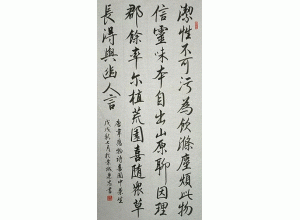 潔性不可污為飲滌塵煩此物
信靈味本自出山原聊因理
郡餘率尔植荒園喜隨眾草
長得與幽人言
唐韋應物詩喜園中茶生
戊戌秋七月於京